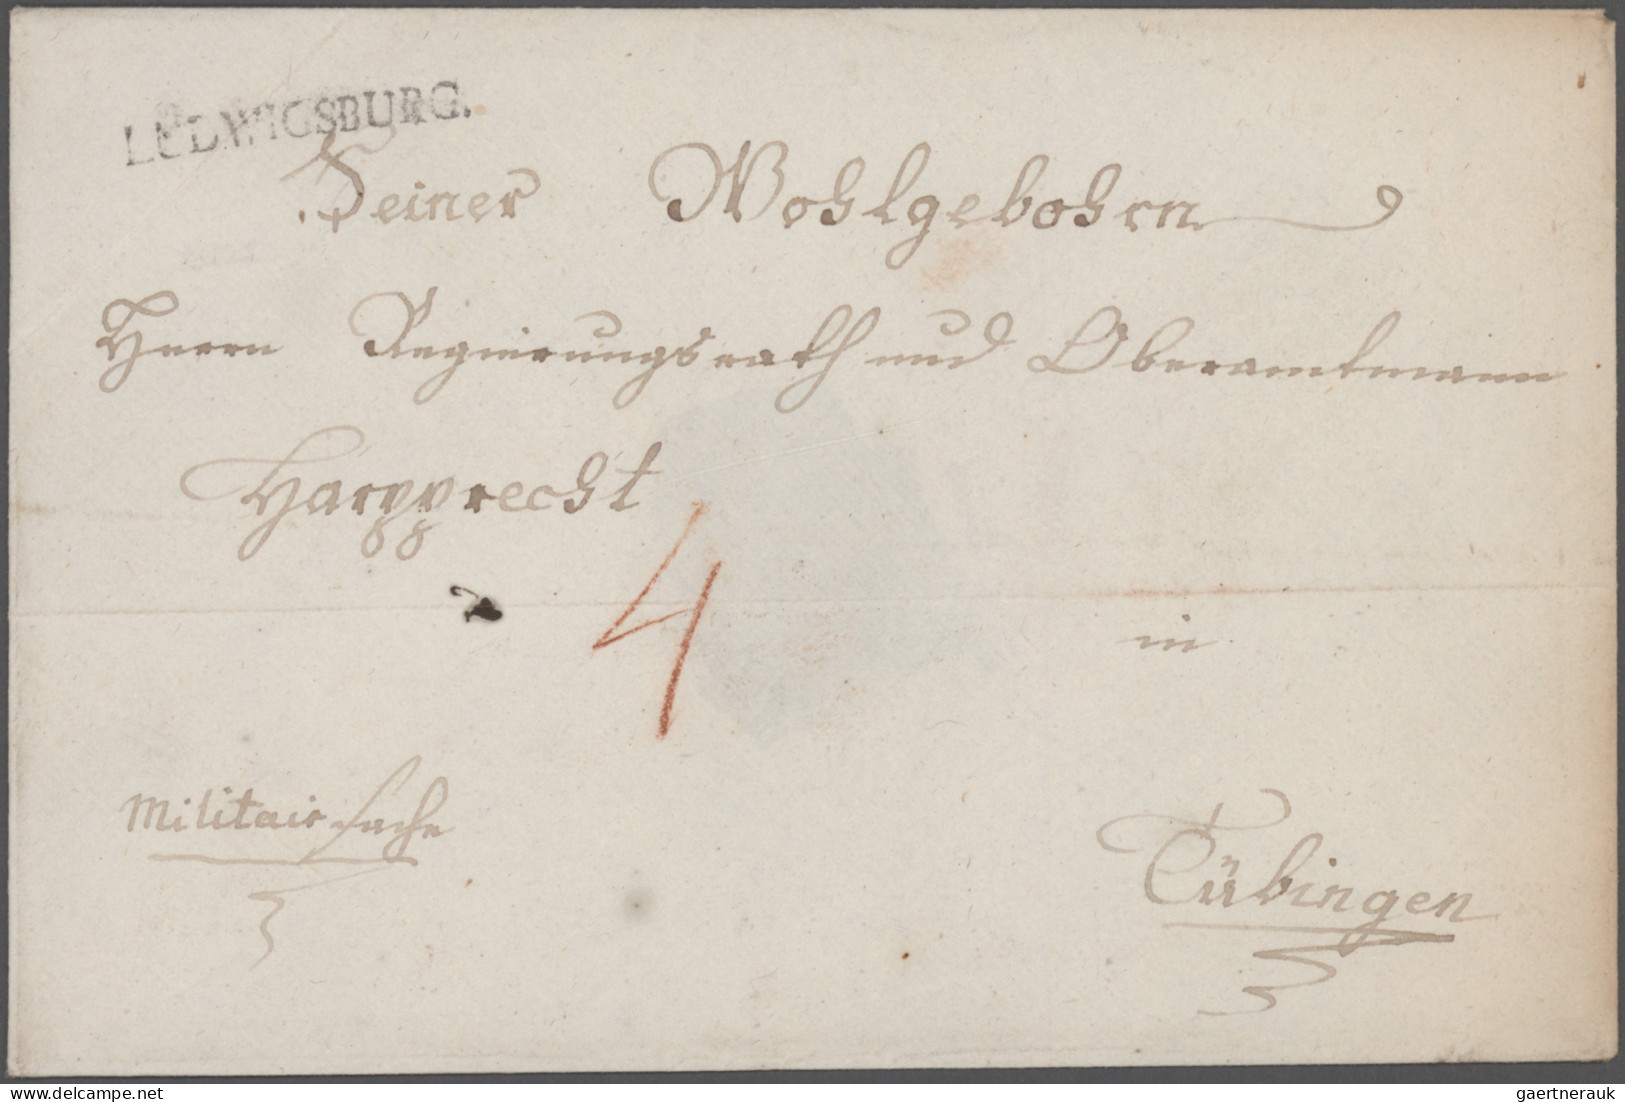 LUDWIGSBURG.
Seiner Wohlgebohrn
Herrn Regierungsrath und Oberamtmann
Harpprecht
4
in
Militair sache
Tübingen
delcampe.net
gaertnerauk